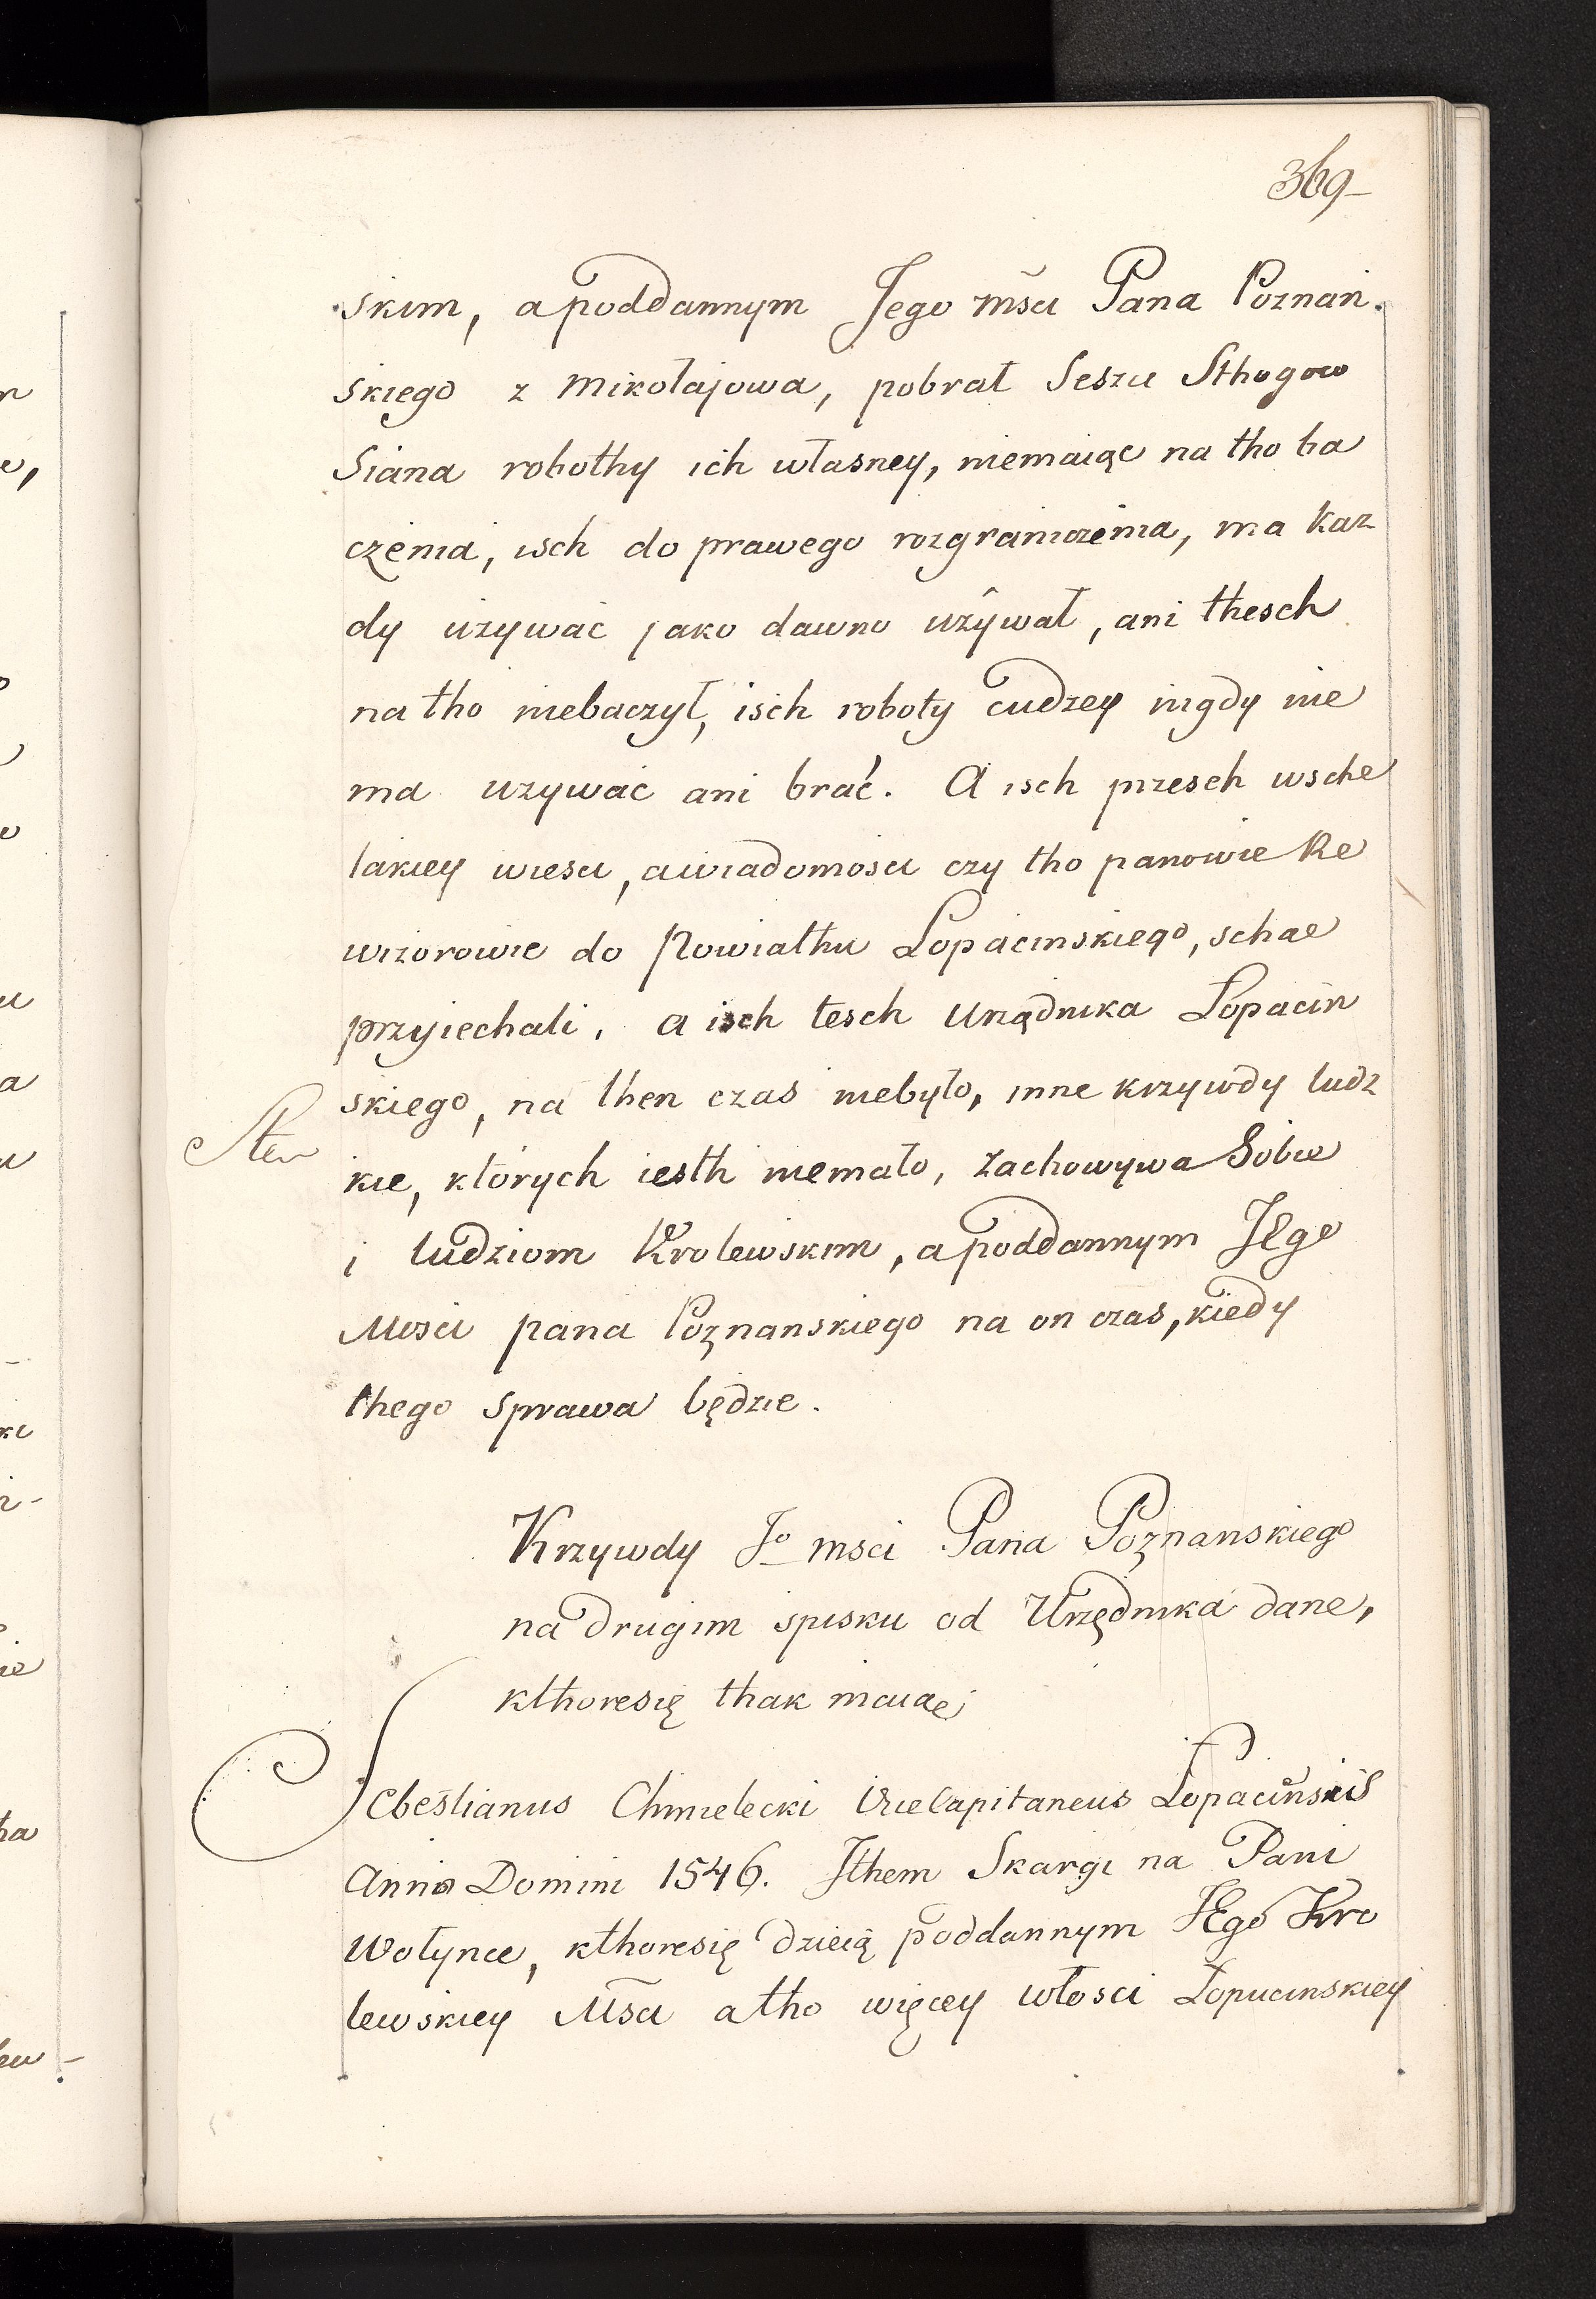 369
skim, a poddannym Jego mści Pana Poznań.
skiego z Mikołajowa, pobrał Seszci Sthogow
Siana robothy ich własney, niemaiąc na tho ba
czenia, isch do prawego rozgraniczenia, ma każ
dy uzywać jako dawno uzywał, ani thesch
na tho niebaczył, isch roboty cudzey nigdy nie
ma uzywać ani brać. A isch przesch wsche
lakiey wiesci, a wiadomosci czy tho panowie Re
wizorowie do Powiathu Łopacinskiego, schae
przyiechali, a isch tesch Urzędnika Łopacin
skiego, na then czas niebyło, inne krzywdy ludz
kie, których iesth niemało, zachowywa Sobie
i ludziom Krolewskim, a poddannym JEgo
Mosci pana Poznanskiego na on czas, kiedy
thego sprawa będzie.
Krzywdy Jo msci Pana Poznanskiego
na drugim spisku od Urzędnika dane,
kthoresię thak maiąc;
Sebestianus Chmielecki ViceCapitaneus Łopacinskis
Anno Domini 1546. Ithem Skargi na Pani
Wołynce, kthoresię dzieią poddannym JEgo Kro
lewskiey Mści a tho więcey włosci Łopucinskiey